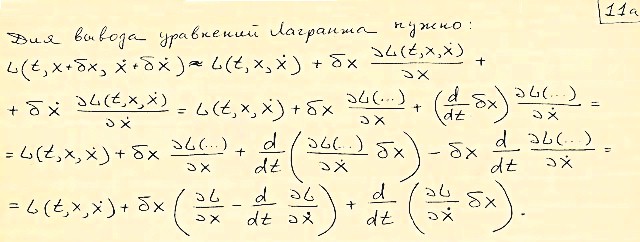 11a
Для вывода уравнений Лагранжа нужно:
L(t, x+δx, ẋ+δẋ) ≈ L(t, x, ẋ) + δx ∂L(t, x, ẋ)/∂x +
+ δẋ ∂L(t, x, ẋ)/∂ẋ = L(t, x, ẋ) + δx ∂L(...)/∂x + (d/dt δx) ∂L(...)/∂ẋ =
= L(t, x, ẋ) + δx ∂L(...)/∂x + d/dt (∂L(...)/∂ẋ δx) − δx d/dt ∂L(...)/∂ẋ =
= L(t, x, ẋ) + δx (∂L/∂x − d/dt ∂L/∂ẋ) + d/dt (∂L/∂ẋ δx).